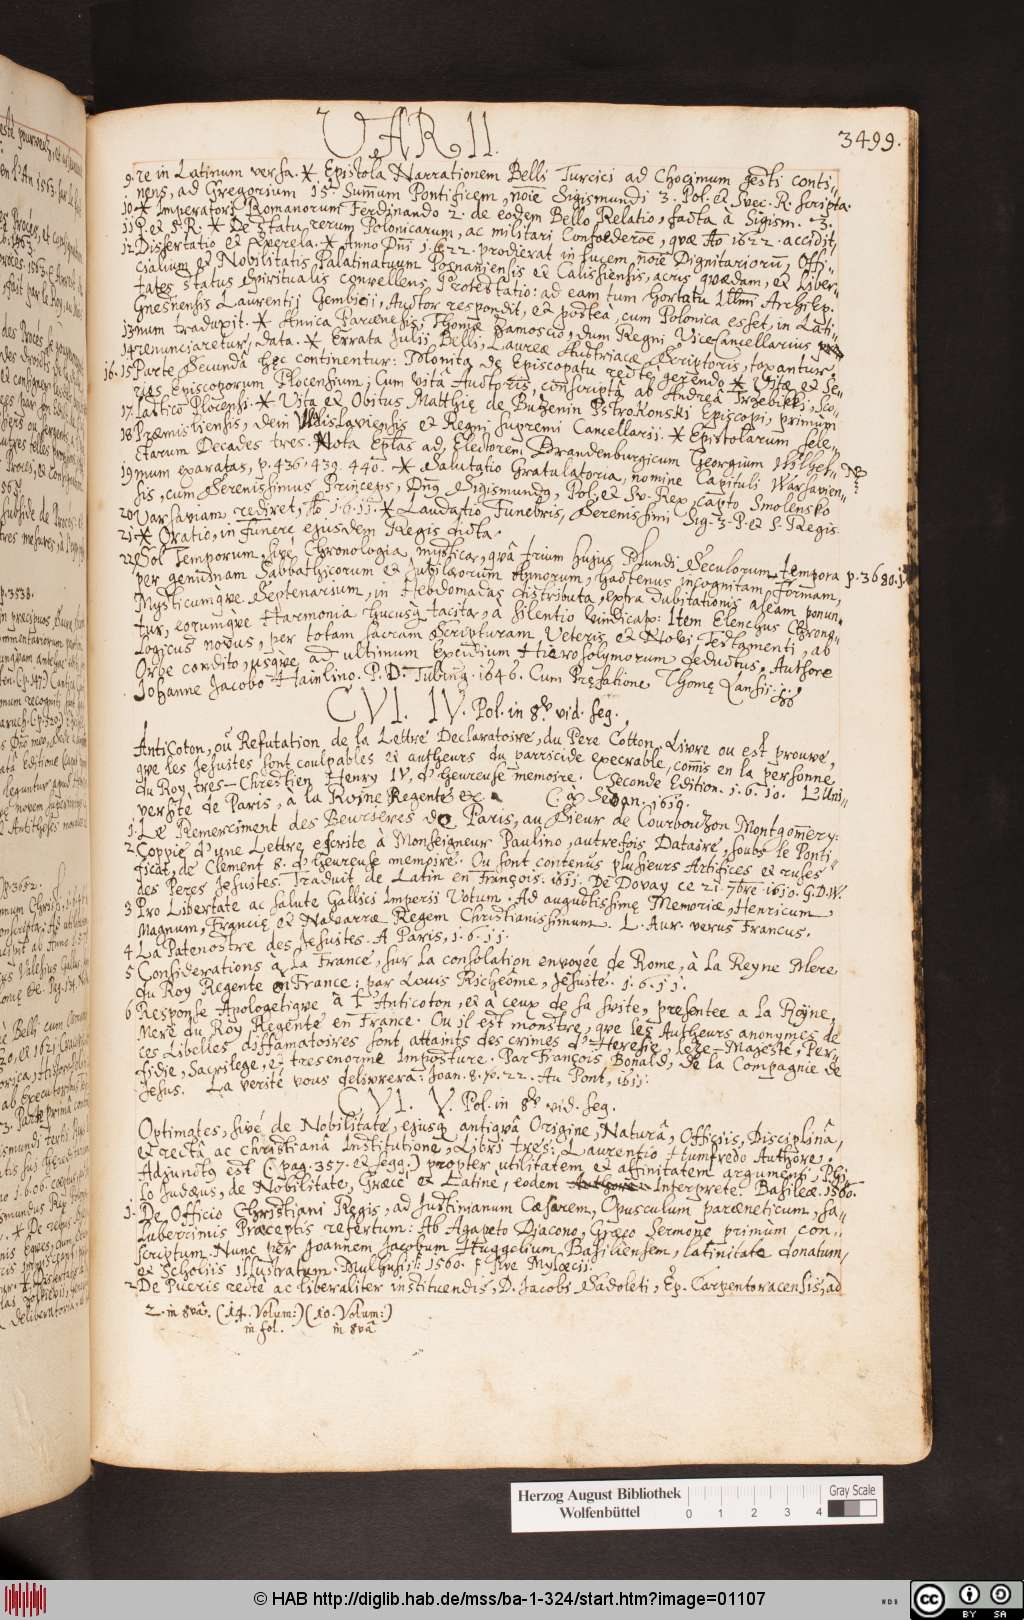 VARII.
3499.
9. re in Latinum versa. * Epistola Narrationem Belli Turcici ad Chocimum gesti conti-
nens, ad Gregorium 15. Summum Pontificem, noïe Sigismundi 3. Pol. et Svec. R. scripta.
10. * Imperatori Romanorum Ferdinando 2. de eodem Bello Relatio, facta à Sigism. 3.
11. P. et S. R. * De statu rerum Polonicarum, ac militari Confoederöe, quæ Aō 1622. accidit,
12. Dissertatio et Querela. * Anno Dnï 1622. prodierat in lucem, noïe Dignitariorū, Offi-
cialium et Nobilitatis Palatinatuum Posnaniensis et Calissiensis, acris quædam, et Liber-
tates status spiritualis convellens, Protestatio: ad eam tum hortatu Illmi Archi Ep.
Gnesnensis Laurentij Gembicii, Auctor respondit, et postea, cum Polonica esset, in Lati-
13. num traduxit. * Amica Parænesis, Thomæ Zamoscio, dum Regni ViceCancellarius
14. renunciaretur, data. * Errata Julii Belli, Laureæ Austriacæ Scriptoris, taxantur.
16. 15. Parte Secundâ hęc continentur: Polonita, de Episcopatu rectè gerendo * Vitæ et Se-
ries Episcoporum Plocensium, Cum vitâ Auctoris, conscriptâ ab Andreâ Trzebikki, Sco-
17. lastico Plocensi. * Vita et Obitus Matthię de Buzenin Pstrokonski Episcopi, primùm
18. Præmisliensis, dein Wladislaviensis et Regni supremi Cancellarii. * Epistolarum Sele-
ctarum Decades tres. Nota Eplas ad, Electorem Brandenburgicum Georgium Wilhel-
19. mum exaratas, p. 436. 439. 440. * Salutatio Gratulatoria, nomine Capituli Warsavien- NB
sis, cum Serenissimus Princeps, Dnus Sigismundus, Pol. et Sv. Rex, capto Smolensko
20. Varsaviam rediret, Aō 1611. * Laudatio Funebris, Serenissimi Sig. 3. P. et S. Regis
21. * Oratio, in funere ejusdem Regis dicta.
22. Sol Temporum, sive Chronologia mystica, quâ trium hujus Mundi Seculorum tempora p. 3680.
per genuinam Sabbathicorum et Jubilæorum Annorum, hactenus incognitam Formam,
Mysticumq́ve Septenarium, in Hebdomadas distributa, extra dubitationis aleam ponun-
tur, eorumq́ve Harmonia hucusq́ tacita, à silentio vindicatr: Item Elenchus Chrono-
logicus novus, per totam sacram Scripturam Veteris et Novi Testamenti, ab
Orbe condito, usq́ve ad ultimum Excidium Hierosolymorum deductus, Authore
Johanne Jacobo Hainlino. P. D. Tubing. 1646. Cum Pręfatione Thomę Lansii.
CVI. IV. Pol. in 8vo. vid. seq.
AntiCoton, ou Refutation de la Lettre Declaratoire, du Pere Cotton. Livre ou est prouvé,
que les Jesuites sont coulpables et autheurs du parricide execrable, comis en la personne
du Roy, tres-Chrestien Henry IV, d'heureuse memoire. Seconde Edition. 1610. L'Uni-
versité de Paris, à la Roine Regente ex Sedan. 1610.
1. Le Remerciment des Beurieres de Paris, au Sieur de Courbouzon Montgomery.
2. Coppie d'une Lettre escrite à Monseigneur Paulino, autrefois Dataire, soubs le Ponti-
ficat, de Clement 8. d'heureuse memoire. Ou sont contenus plusieurs Artifices et ruses
des Peres Jesuites. Traduit de Latin en François. 1611. De Dovay ce 21. 7bre 1610. G. D. W.
3. Pro Libertate ac salute Gallici Imperii Votum. Ad augustissimę Memoriæ, Henricum,
Magnum, Francię et Navarræ Regem Christianissimum. L. Aur. verus Francus.
4. La Patenostre des Jesuites. A Paris, 1611.
5. Considerations à la France, sur la consolation envoyée de Rome, à la Reyne Mere
du Roy Regente en France: par Louis Richeôme, Jesuite. 1611.
6. Response Apologetique à l'Anticoton, et à ceux de sa suite, presentee a la Royne,
Mere du Roy Regente en France. Ou il est monstré, que les Autheurs anonymes de
ces Libelles diffamatoires sont attaints des crimes d'Heresie, leze-Majesté, Per-
fidie, Sacrilege, et tresenorme Imposture. Par François Bonald, de la Compagnie de
Jesus. La verité vous delivrera: Joan. 8. v. 22. Au Pont, 1611.
CVI. V. Pol. in 8vo vid. seq.
Optimates, sive de Nobilitate, ejusq́ antiquâ Origine, Naturâ, Officiis, Disciplinâ,
et rectâ ac christianâ Institutione, Libri tres: Laurentio Humfredo Authore.
Adjunctus est (pag. 357. et seqq.) propter utilitatem et affinitatem argumenti, Phi-
lo Judæus, de Nobilitate, Græcè et Latinè, eodem Interprete. Basileæ. 1560.
1. De Officio Christiani Regis, ad Justinianum Cæsarem, Opusculum paræneticum, sa-
luberrimis Præceptis refertum: Ab Agapeto Diacono, Græco Sermone primùm con-
scriptum. Nunc per Joannem Jacobum Huggelium Basiliensem, latinitate donatum,
et Scholiis illustratum. Mulhusii: 1560. sive Mylœcii.
2. De Pueris rectè ac liberaliter instituendis, D. Jacobi Sadoleti, Ep. Carpentoracensis, ad
2. in 8vâ. (14. Volum:) (10. Volum:)
in fol. in 8vâ
Herzog August Bibliothek
Wolfenbüttel
0 1 2 3 4
Gray Scale
© HAB http://diglib.hab.de/mss/ba-1-324/start.htm?image=01107
cc BY SA